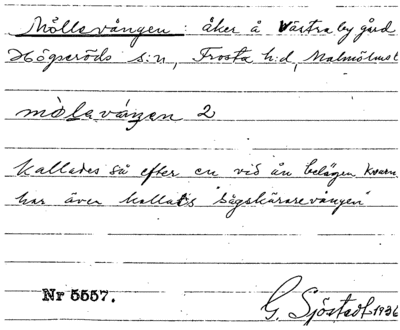 Möllevången: åker å Västraby gård
Högseröds s:n, Frosta h:d, Malmöhus l
möl̥eváŋen 2
Kallades så efter en vid ån belägen kvarn.
har även kallats "Sågskärarevången"
Nr 5557.
G. Sjöstedt 1936